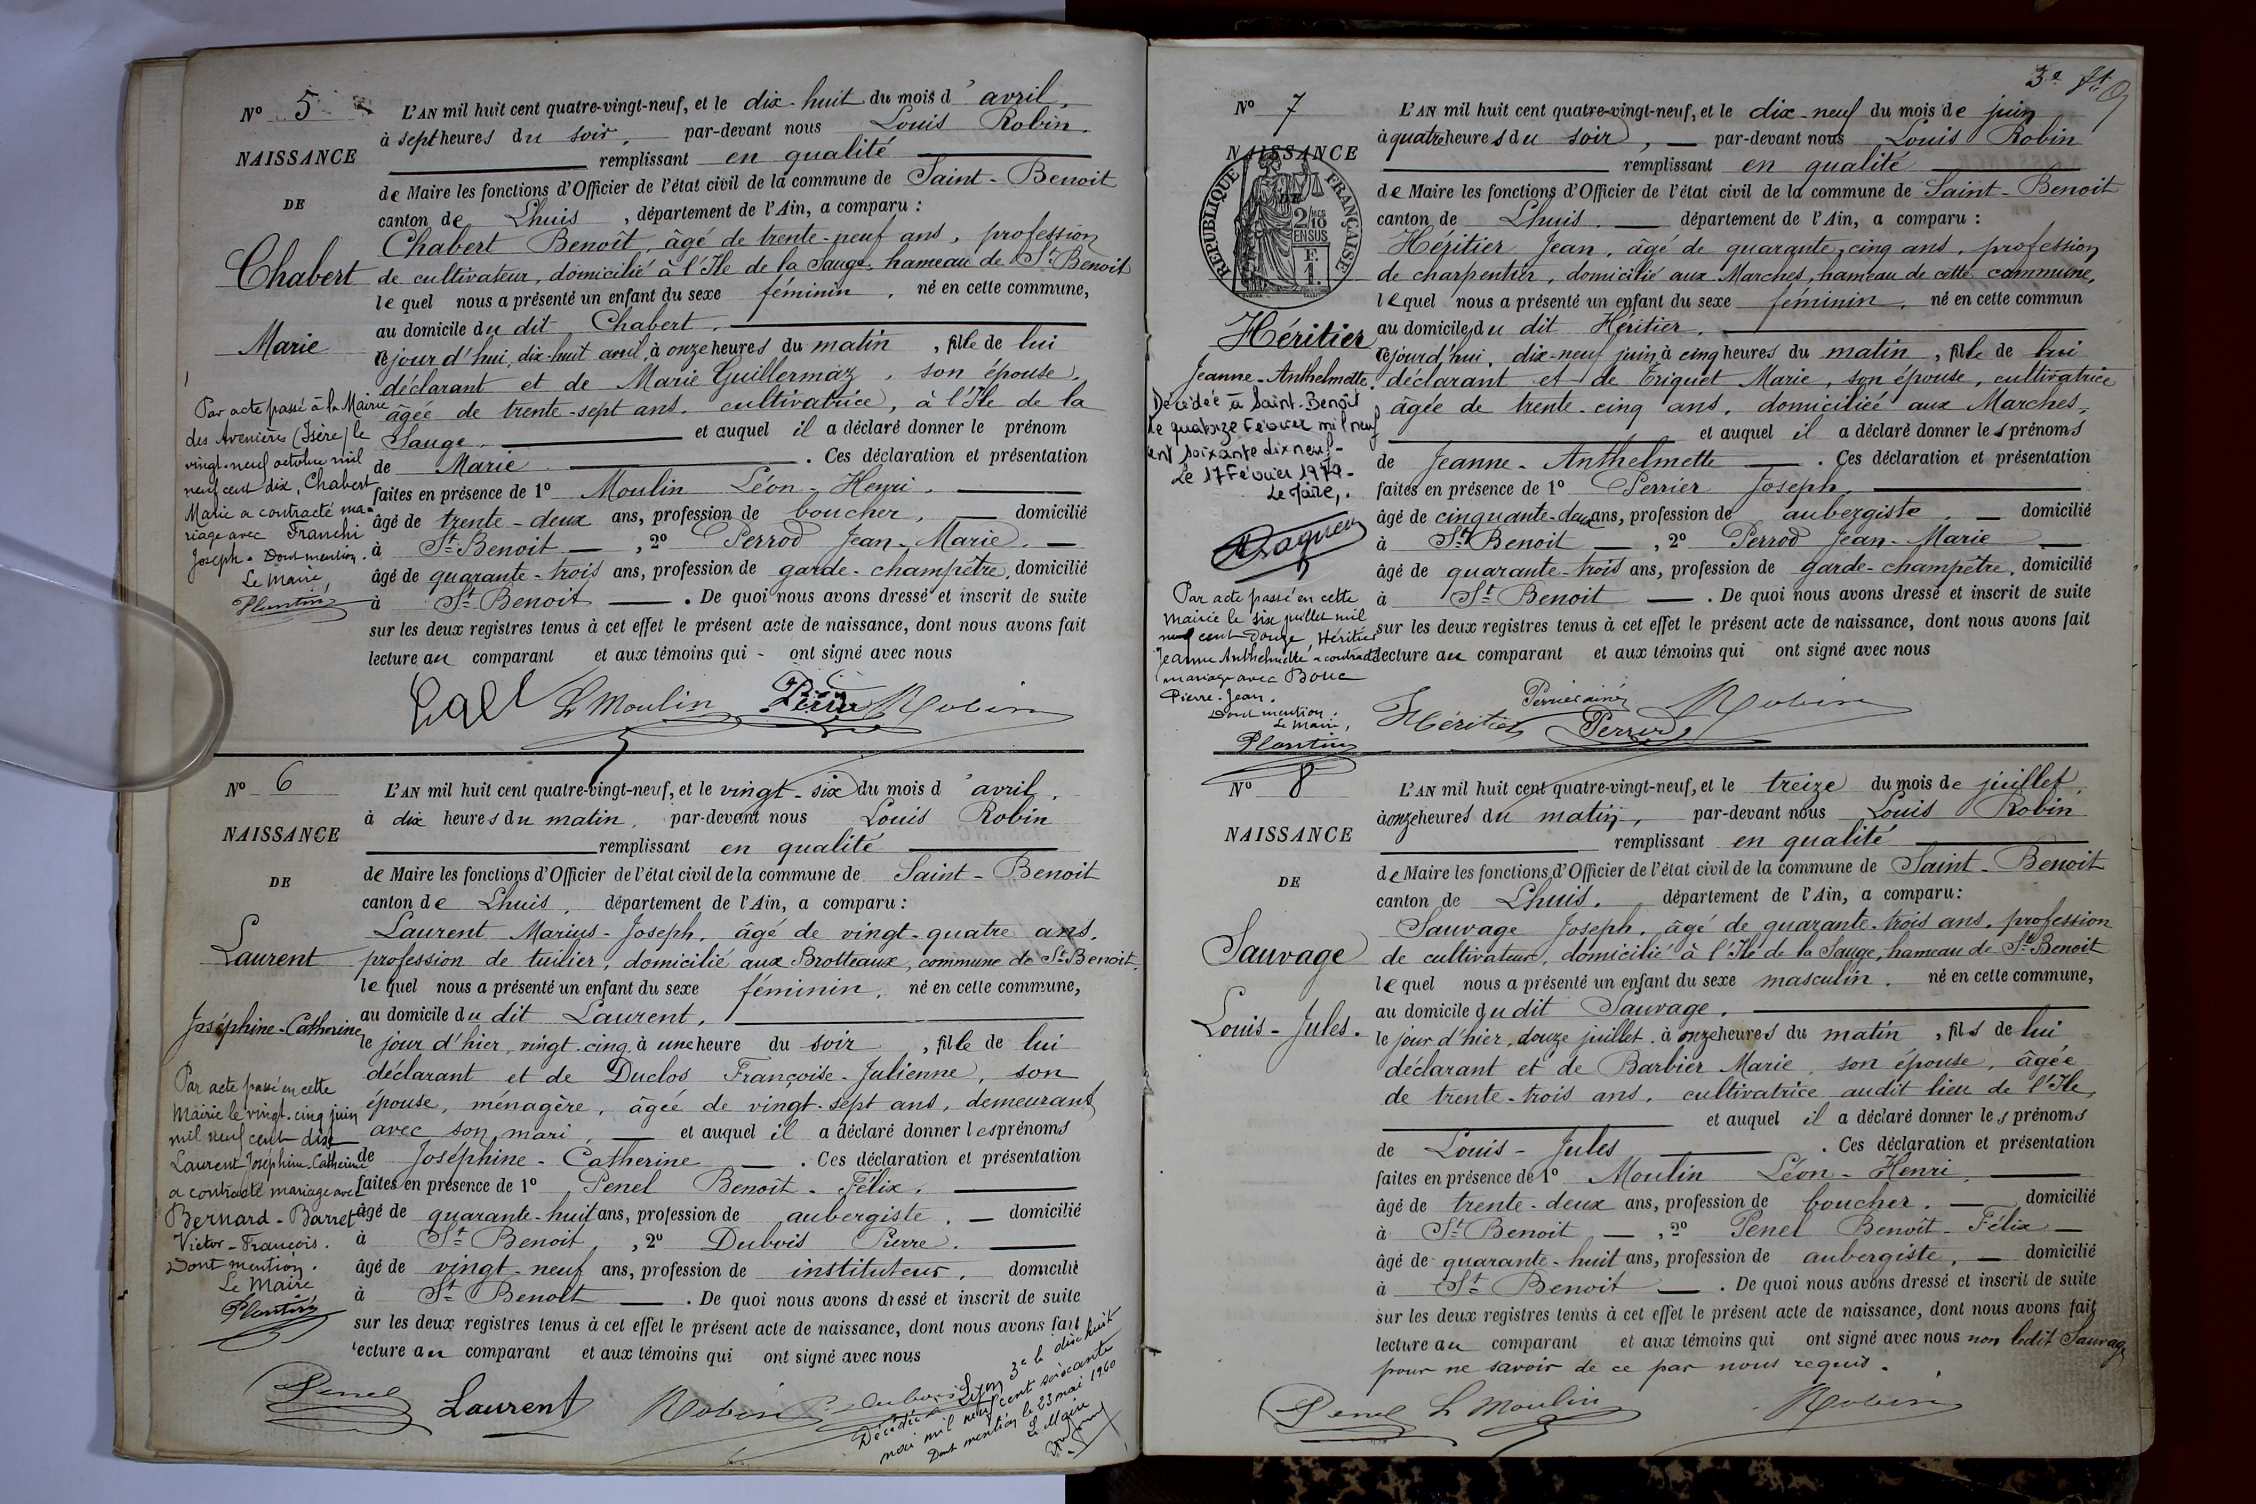 N° 5
NAISSANCE
DE
Chabert
Marie
Par acte passé à la Mairie
des Avenières (Isère) le
vingt-neuf octobre mil
neuf cent dix, Chabert
Marie a contracté ma-
riage avec Franchi
Joseph. Dont mention.
Le Maire,
Plantin
L'AN mil huit cent quatre-vingt-neuf, et le dix-huit du mois d'avril,
à sept heures du soir, par-devant nous Louis Robin.
remplissant en qualité
de Maire les fonctions d'Officier de l'état civil de la commune de Saint-Benoit
canton de Lhuis, département de l'Ain, a comparu :
Chabert Benoît, âgé de trente-neuf ans, profession
de cultivateur, domicilié à l'Ile de la Sauge, hameau de St Benoit
lequel nous a présenté un enfant du sexe féminin, né en cette commune,
au domicile du dit Chabert.
cejourd'hui, dix-huit avril, à onze heures du matin, fille de lui
déclarant et de Marie Guillermaz, son épouse,
âgée de trente-sept ans, cultivatrice, à l'Ile de la
Sauge. et auquel il a déclaré donner le prénom
de Marie. Ces déclaration et présentation
faites en présence de 1° Moulin Léon-Henri.
âgé de trente-deux ans, profession de boucher, domicilié
à St Benoit, 2° Perrod Jean-Marie.
âgé de quarante-trois ans, profession de garde-champêtre, domicilié
à St Benoit. De quoi nous avons dressé et inscrit de suite
sur les deux registres tenus à cet effet le présent acte de naissance, dont nous avons fait
lecture au comparant et aux témoins qui - ont signé avec nous
L Moulin Robin
N° 6
NAISSANCE
DE
Laurent
Joséphine-Catherine
Par acte passé en cette
Mairie le vingt-cinq juin
mil neuf cent dix
Laurent Joséphine-Catherine
a contracté mariage avec
Bernard-Barret
Victor-François.
Dont mention.
Le Maire
Plantin
L'AN mil huit cent quatre-vingt-neuf, et le vingt-six du mois d'avril,
à dix heures du matin, par-devant nous Louis Robin
remplissant en qualité
de Maire les fonctions d'Officier de l'état civil de la commune de Saint-Benoit
canton de Lhuis, département de l'Ain, a comparu :
Laurent Marius-Joseph, âgé de vingt-quatre ans,
profession de tuilier, domicilié aux Brotteaux, commune de St Benoit,
lequel nous a présenté un enfant du sexe féminin, né en cette commune,
au domicile du dit Laurent,
le jour d'hier, vingt-cinq, à une heure du soir, fille de lui
déclarant et de Duclos Françoise-Julienne, son
épouse, ménagère, âgée de vingt-sept ans, demeurant
avec son mari, et auquel il a déclaré donner les prénoms
de Joséphine-Catherine. Ces déclaration et présentation
faites en présence de 1° Penel Benoît-Félix.
âgé de quarante-huit ans, profession de aubergiste, domicilié
à St Benoit, 2° Dubois Pierre.
âgé de vingt-neuf ans, profession de instituteur, domicilié
à St Benoit. De quoi nous avons dressé et inscrit de suite
sur les deux registres tenus à cet effet le présent acte de naissance, dont nous avons fait
lecture au comparant et aux témoins qui ont signé avec nous
Penel Laurent Robin Dubois
Décédée à Lyon 3e le dix huit
mai mil neuf cent soixante
Dont mention le 23 mai 1960
Le Maire
3e
N° 7
NAISSANCE
DE
RÉPUBLIQUE FRANÇAISE
2/10 EN SUS
F. 1.
Héritier
Jeanne-Anthelmette.
Décédée à Saint-Benoît
le quatorze Février mil neuf
cent soixante dix neuf-
Le 17 Février 1979-
Le Maire,
Par acte passé en cette
Mairie le six juillet mil
neuf cent douze, Héritier
Jeanne Anthelmette a contracté
mariage avec Bouc
Pierre-Jean.
Dont mention.
Le Maire,
Plantin
L'AN mil huit cent quatre-vingt-neuf, et le dix-neuf du mois de juin
à quatre heures du soir, par-devant nous Louis Robin
remplissant en qualité
de Maire les fonctions d'Officier de l'état civil de la commune de Saint-Benoit
canton de Lhuis, département de l'Ain, a comparu :
Héritier Jean, âgé de quarante-cinq ans, profession
de charpentier, domicilié aux Marches, hameau de cette commune,
lequel nous a présenté un enfant du sexe féminin, né en cette commun
au domicile du dit Héritier.
cejourd'hui, dix-neuf juin, à cinq heures du matin, fille de lui
déclarant et de Triquet Marie, son épouse, cultivatrice
âgée de trente-cinq ans, domiciliée aux Marches,
et auquel il a déclaré donner les prénoms
de Jeanne-Anthelmette. Ces déclaration et présentation
faites en présence de 1° Perrier Joseph,
âgé de cinquante-deux ans, profession de aubergiste, domicilié
à St Benoit, 2° Perrod Jean-Marie
âgé de quarante-trois ans, profession de garde-champêtre, domicilié
à St Benoit. De quoi nous avons dressé et inscrit de suite
sur les deux registres tenus à cet effet le présent acte de naissance, dont nous avons fait
lecture au comparant et aux témoins qui ont signé avec nous
Héritier Perrier ainé Perrod Robin
N° 8
NAISSANCE
DE
Sauvage
Louis-Jules.
L'AN mil huit cent quatre-vingt-neuf, et le treize du mois de juillet,
à onze heures du matin, par-devant nous Louis Robin
remplissant en qualité
de Maire les fonctions d'Officier de l'état civil de la commune de Saint-Benoit
canton de Lhuis. département de l'Ain, a comparu :
Sauvage Joseph, âgé de quarante-trois ans, profession
de cultivateur, domicilié à l'Ile de la Sauge, hameau de St Benoit
lequel nous a présenté un enfant du sexe masculin. né en cette commune,
au domicile du dit Sauvage.
le jour d'hier, douze juillet, à onze heures du matin, fils de lui
déclarant et de Barbier Marie, son épouse, âgée
de trente-trois ans, cultivatrice audit lieu de l'Ile,
et auquel il a déclaré donner les prénoms
de Louis-Jules. Ces déclaration et présentation
faites en présence de 1° Moulin Léon-Henri,
âgé de trente-deux ans, profession de boucher. domicilié
à St Benoit, 2° Penel Benoît-Félix
âgé de quarante-huit ans, profession de aubergiste, domicilié
à St Benoit. De quoi nous avons dressé et inscrit de suite
sur les deux registres tenus à cet effet le présent acte de naissance, dont nous avons fait
lecture au comparant et aux témoins qui ont signé avec nous non ledit Sauvage
pour ne savoir de ce par nous requis.
Penel L Moulin Robin